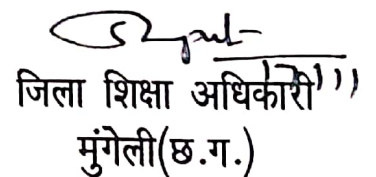 जिला शिक्षा अधिकारी
मुंगेली(छ.ग.)